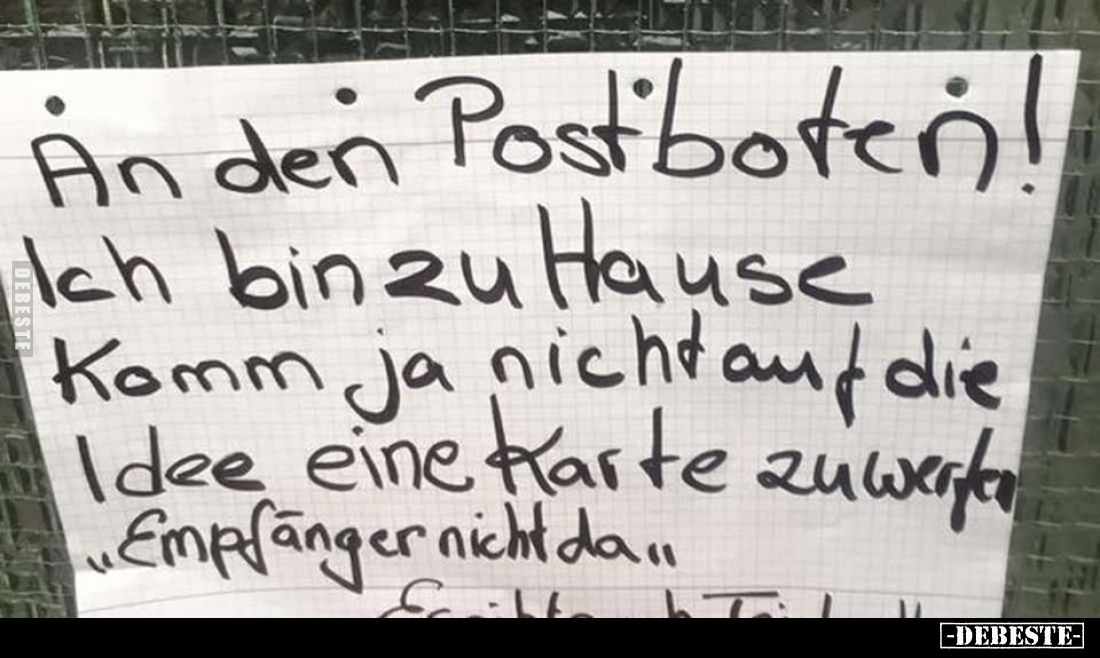 An den Postboten!
Ich bin zu Hause
Komm ja nicht auf die
Idee eine Karte zu werfen
„Empfänger nicht da„
DEBESTE
-DEBESTE-